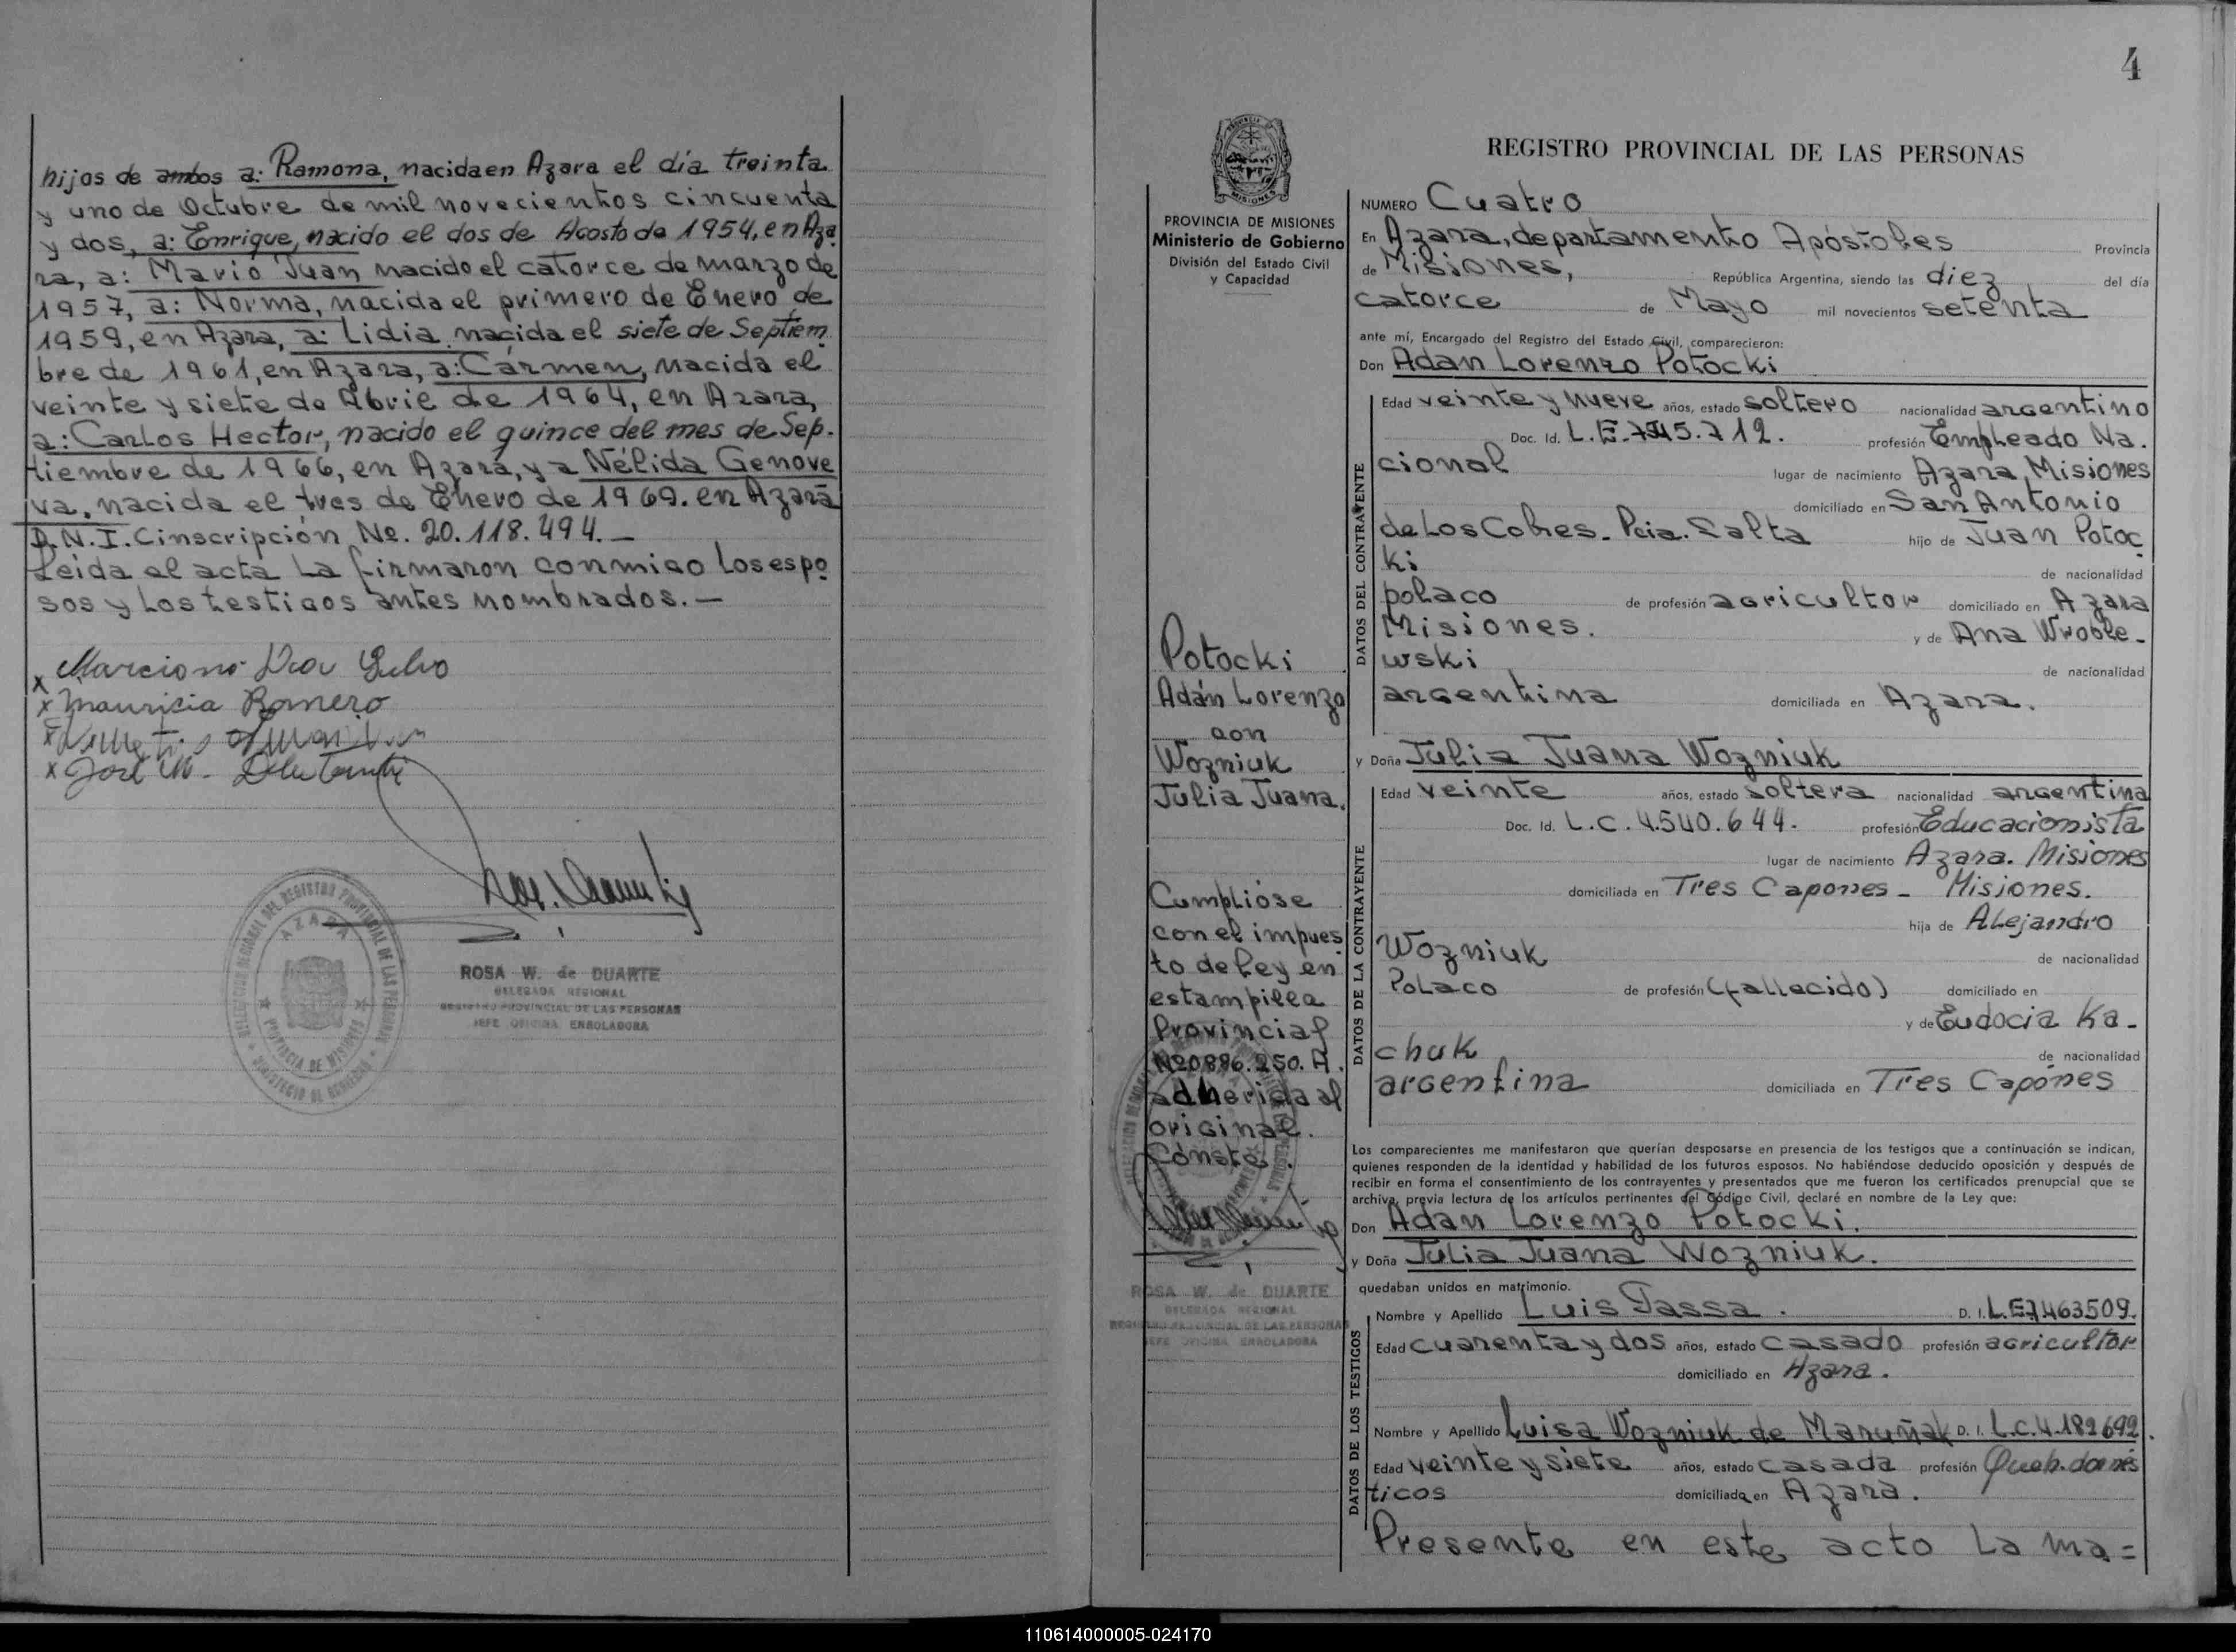 hijos de ambos a: Ramona, nacida en Azara el día treinta
y uno de Octubre de mil novecientos cincuenta
y dos, a: Enrique, nacido el dos de Agosto de 1954, en Aza
ra, a: Mario Juan nacido el catorce de marzo de
1957, a: Norma, nacida el primero de Enero de
1959, en Azara, a: Lidia nacida el siete de Septiem
bre de 1961, en Azara, a: Cármen, nacida el
veinte y siete de Abril de 1964, en Azara,
a: Carlos Hector, nacido el quince del mes de Sep.
tiembre de 1966, en Azara, y a Nélida Genove
va, nacida el tres de Enero de 1969. en Azara
D.N.I. Cinscripción No. 20.118.494.—
Leida el acta la firmaron conmigo los espo
sos y los testigos antes nombrados.—
x Marciano
x Mauricia Romero
x
x José M.
AZARA
PROVINCIA DE MISIONES
ROSA W. de DUARTE
DELEGADA REGIONAL
REGISTRO PROVINCIAL DE LAS PERSONAS
JEFE OFICINA ENROLADORA
4
PROVINCIA DE MISIONES
Ministerio de Gobierno
División del Estado Civil
y Capacidad
Potocki
Adán Lorenzo
con
Wozniuk
Julia Juana.
Cumplióse
con el impues
to de ley en
estampilla
Provincial
No 0896.250. A.
adherida al
original.
Conste.
ROSA W. de DUARTE
DELEGADA REGIONAL
REGISTRO PROVINCIAL DE LAS PERSONAS
JEFE OFICINA ENROLADORA
REGISTRO PROVINCIAL DE LAS PERSONAS
NUMERO Cuatro
En Azara, departamento Apóstoles Provincia
de Misiones, República Argentina, siendo las diez del día
catorce de Mayo mil novecientos setenta
ante mí, Encargado del Registro del Estado Civil, comparecieron:
Don Adan Lorenzo Potocki
DATOS DEL CONTRAYENTE
Edad veinte y nueve años, estado soltero nacionalidad argentino
Doc. Id. L.E. 7.545.712. profesión Empleado Na.
cional lugar de nacimiento Azara, Misiones
domiciliado en San Antonio
de Los Cobres. Pcia. Salta hijo de Juan Potoc
ki de nacionalidad
polaco de profesión agricultor domiciliado en Azara
Misiones. y de Ana Wroble-
wski de nacionalidad
argentina domiciliada en Azara.
y Doña Julia Juana Wozniuk
DATOS DE LA CONTRAYENTE
Edad veinte años, estado soltera nacionalidad argentina
Doc. Id. L.C. 4.540.644. profesión Educacionista
lugar de nacimiento Azara. Misiones
domiciliada en Tres Capones - Misiones.
hija de Alejandro
Wozniuk de nacionalidad
Polaco de profesión (fallecido) domiciliado en
y de Eudocia Ka-
chuk de nacionalidad
argentina domiciliada en Tres Capónes
Los comparecientes me manifestaron que querían desposarse en presencia de los testigos que a continuación se indican,
quienes responden de la identidad y habilidad de los futuros esposos. No habiéndose deducido oposición y después de
recibir en forma el consentimiento de los contrayentes y presentados que me fueron los certificados prenupcial que se
archiva, previa lectura de los artículos pertinentes del Código Civil, declaré en nombre de la Ley que:
Don Adan Lorenzo Potocki.
y Doña Julia Juana Wozniuk.
quedaban unidos en matrimonio.
DATOS DE LOS TESTIGOS
Nombre y Apellido Luis Tassa. D. I. L.E. 7.463509.
Edad cuarenta y dos años, estado casado profesión agricultor
domiciliado en Azara.
Nombre y Apellido Luisa Wozniuk de Maruñak D. I. L.C. 4.182692.
Edad veinte y siete años, estado casada profesión Queh. domés
ticos domiciliada en Azara.
Presente en este acto la ma=
110614000005-024170